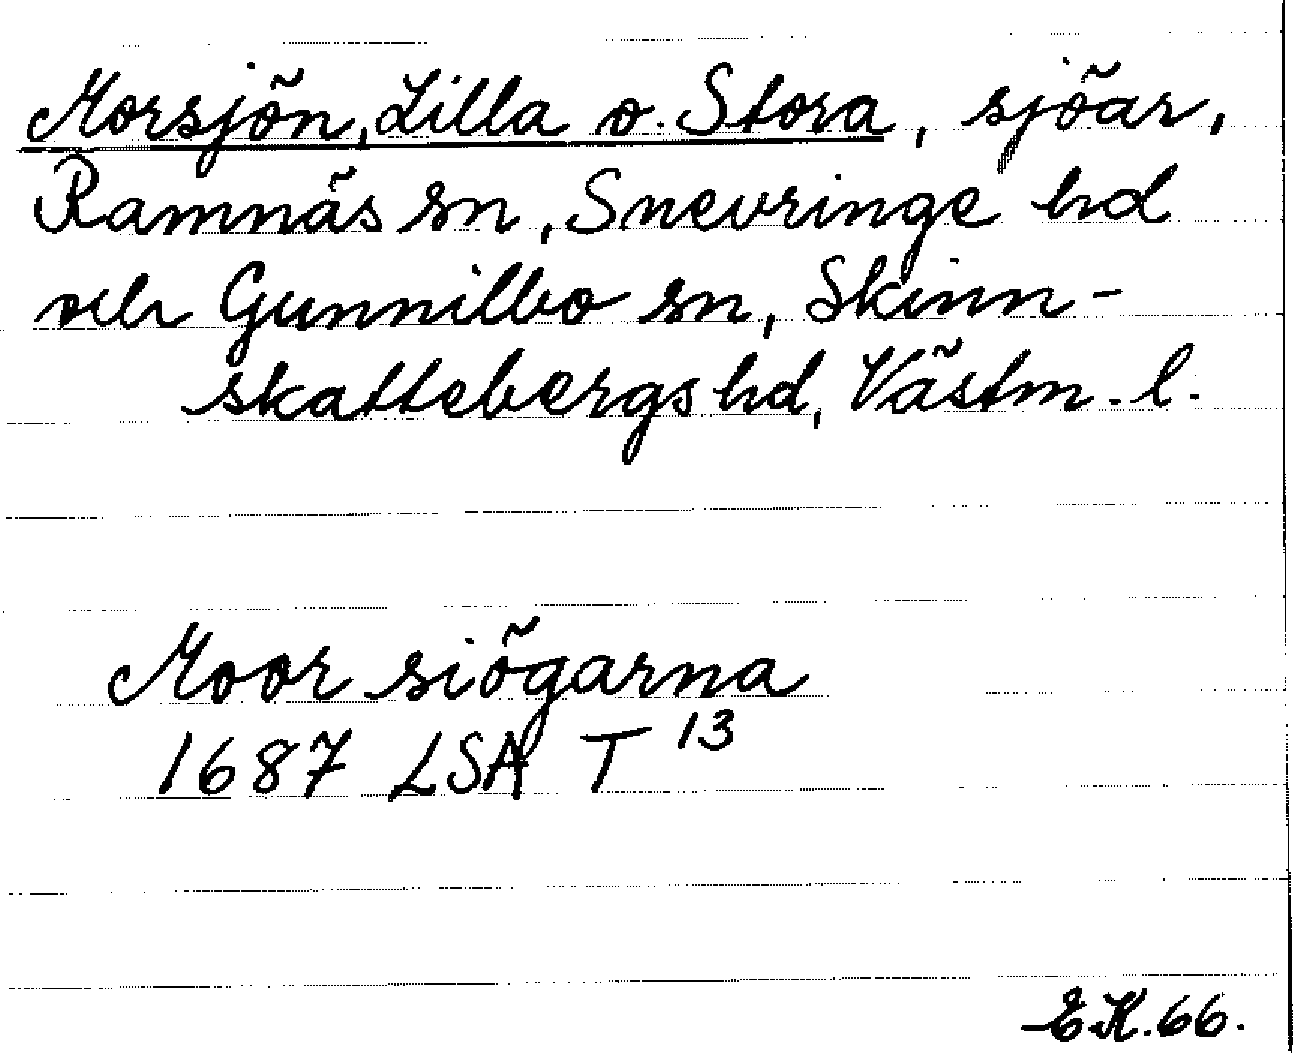 Morsjön, Lilla o. Stora, sjöar,
Ramnäs sn, Snevringe hd
och Gunnilbo sn, Skinn-
skattebergs hd, Västm. l.
Moor siögarna
1687 LSA T 13
E.K. 66.